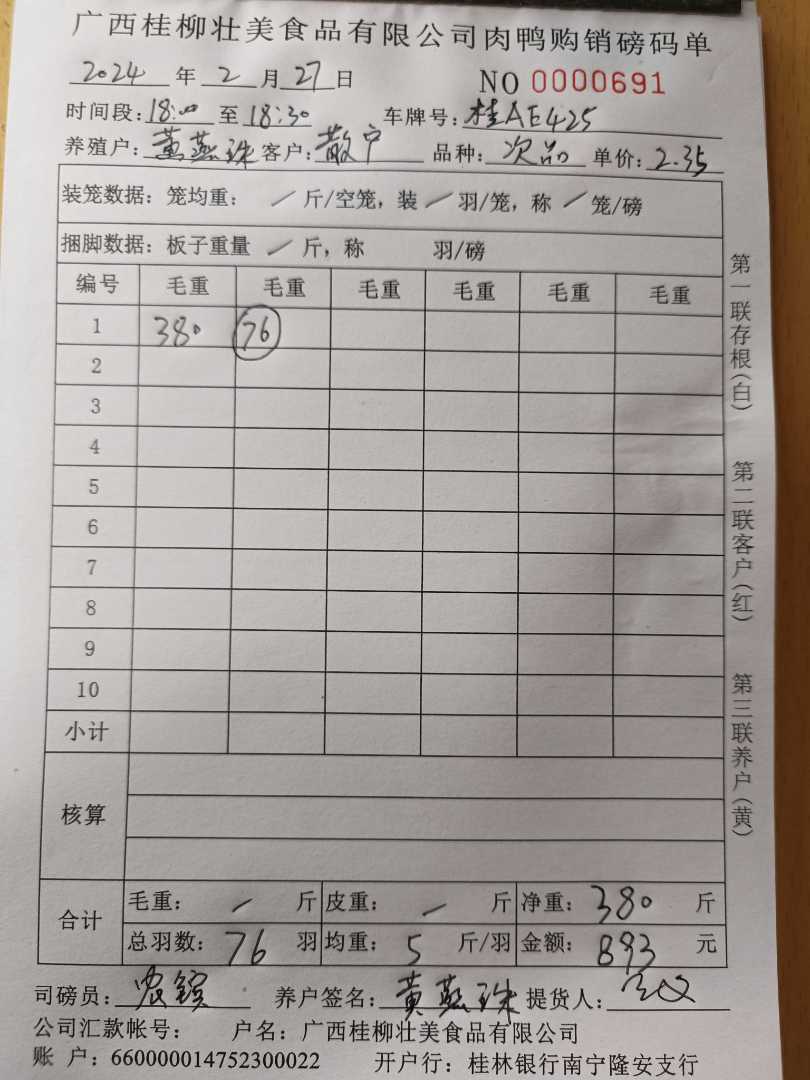 广西桂柳壮美食品有限公司肉鸭购销磅码单
2024 年 2 月 27 日 NO 0000691
时间段: 18:00 至 18:30 车牌号: 桂AE425
养殖户: 黄燕珠 客户: 散户 品种: 次品 单价: 2.35
装笼数据: 笼均重: / 斤/空笼, 装 / 羽/笼, 称 / 笼/磅
捆脚数据: 板子重量 / 斤, 称 羽/磅
编号 毛重 毛重 毛重 毛重 毛重 毛重
1 380 76
2
3
4
5
6
7
8
9
10
小计
核算
合计 毛重: / 斤 皮重: / 斤 净重: 380 斤
总羽数: 76 羽 均重: 5 斤/羽 金额: 893 元
司磅员: 养户签名: 黄燕珠 提货人:
公司汇款帐号: 户名: 广西桂柳壮美食品有限公司
账 户: 660000014752300022 开户行: 桂林银行南宁隆安支行
第一联存根(白)
第二联客户(红)
第三联养户(黄)